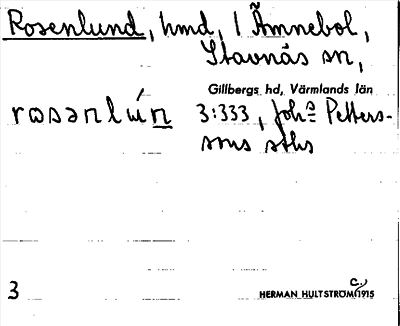 Rosenlund, hmd, 1 Ämnebol,
Stavnäs sn,
Gillbergs hd, Värmlands län
rɷsənlɯ́n 3:333, Joh.s Petters-
sons sths
3 HERMAN HULTSTRÖM c. 1915